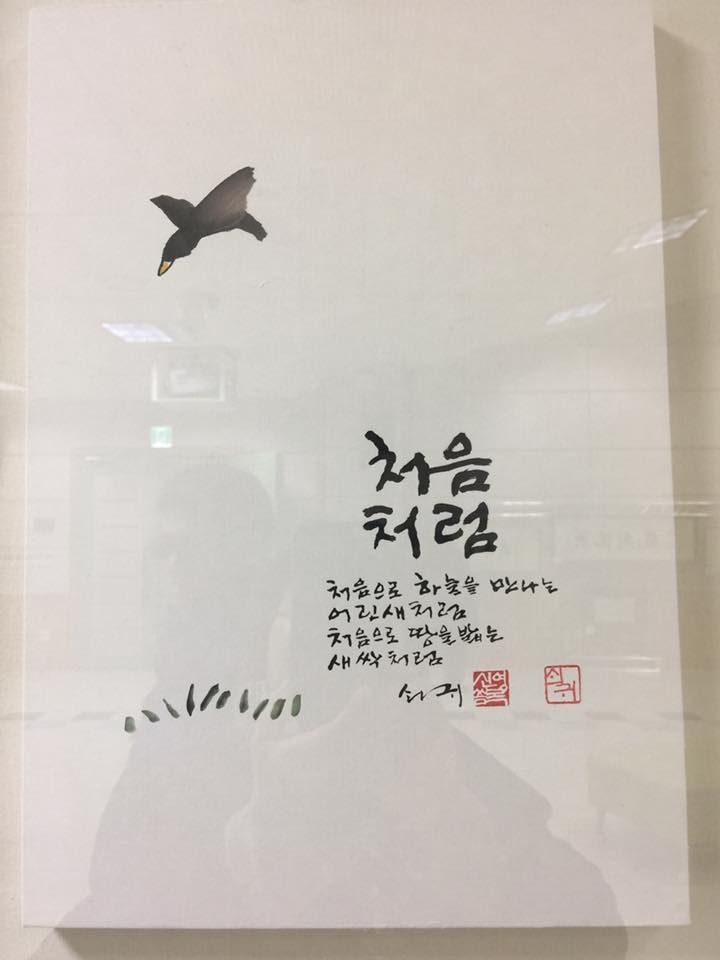 처음
처럼
처음으로 하늘을 만나는
어린새처럼
처음으로 땅을 밟는
새싹처럼
쇠귀